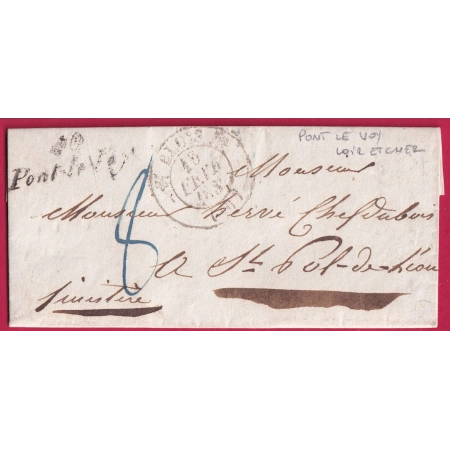 PONT LE VOY
LOIR ET CHER
40
Pont-le-Voy
BLOIS
Monsieur
Monsieur hervé Chefdubois
8
A St Pol-de-Léon
finistère